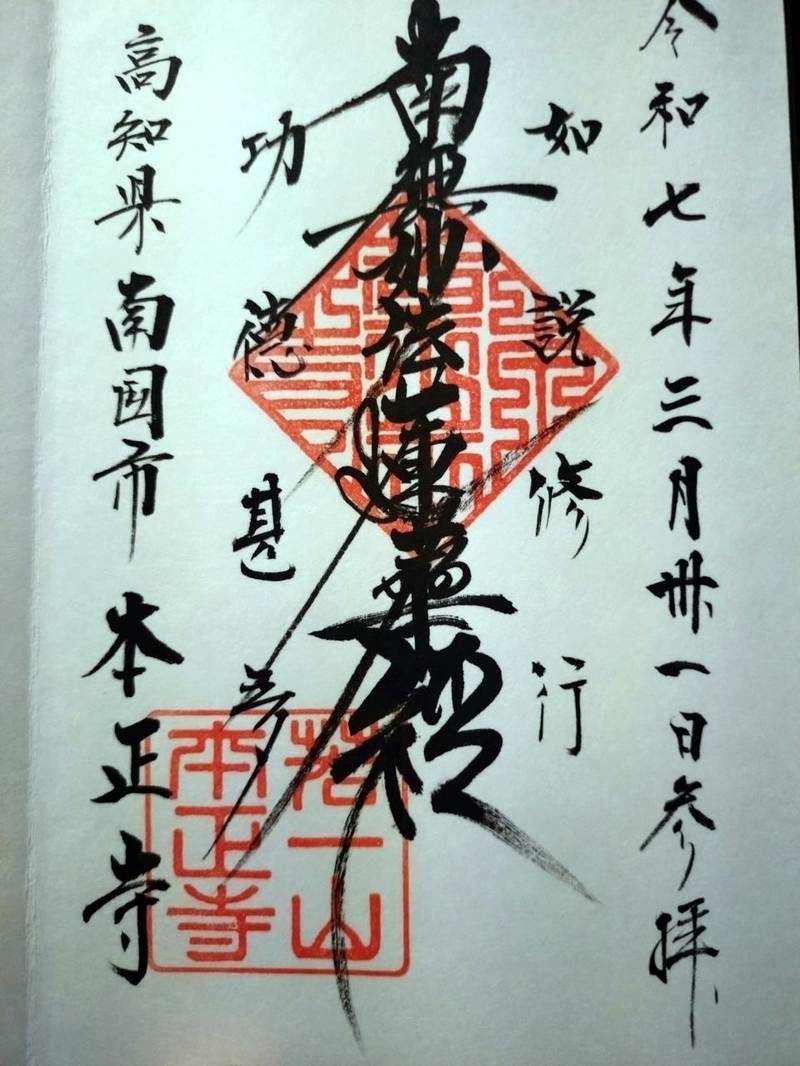 令和七年三月卅一日参拝
如説修行
南無妙法蓮華経
功徳甚多
高知県南国市 本正寺
一山
本正寺